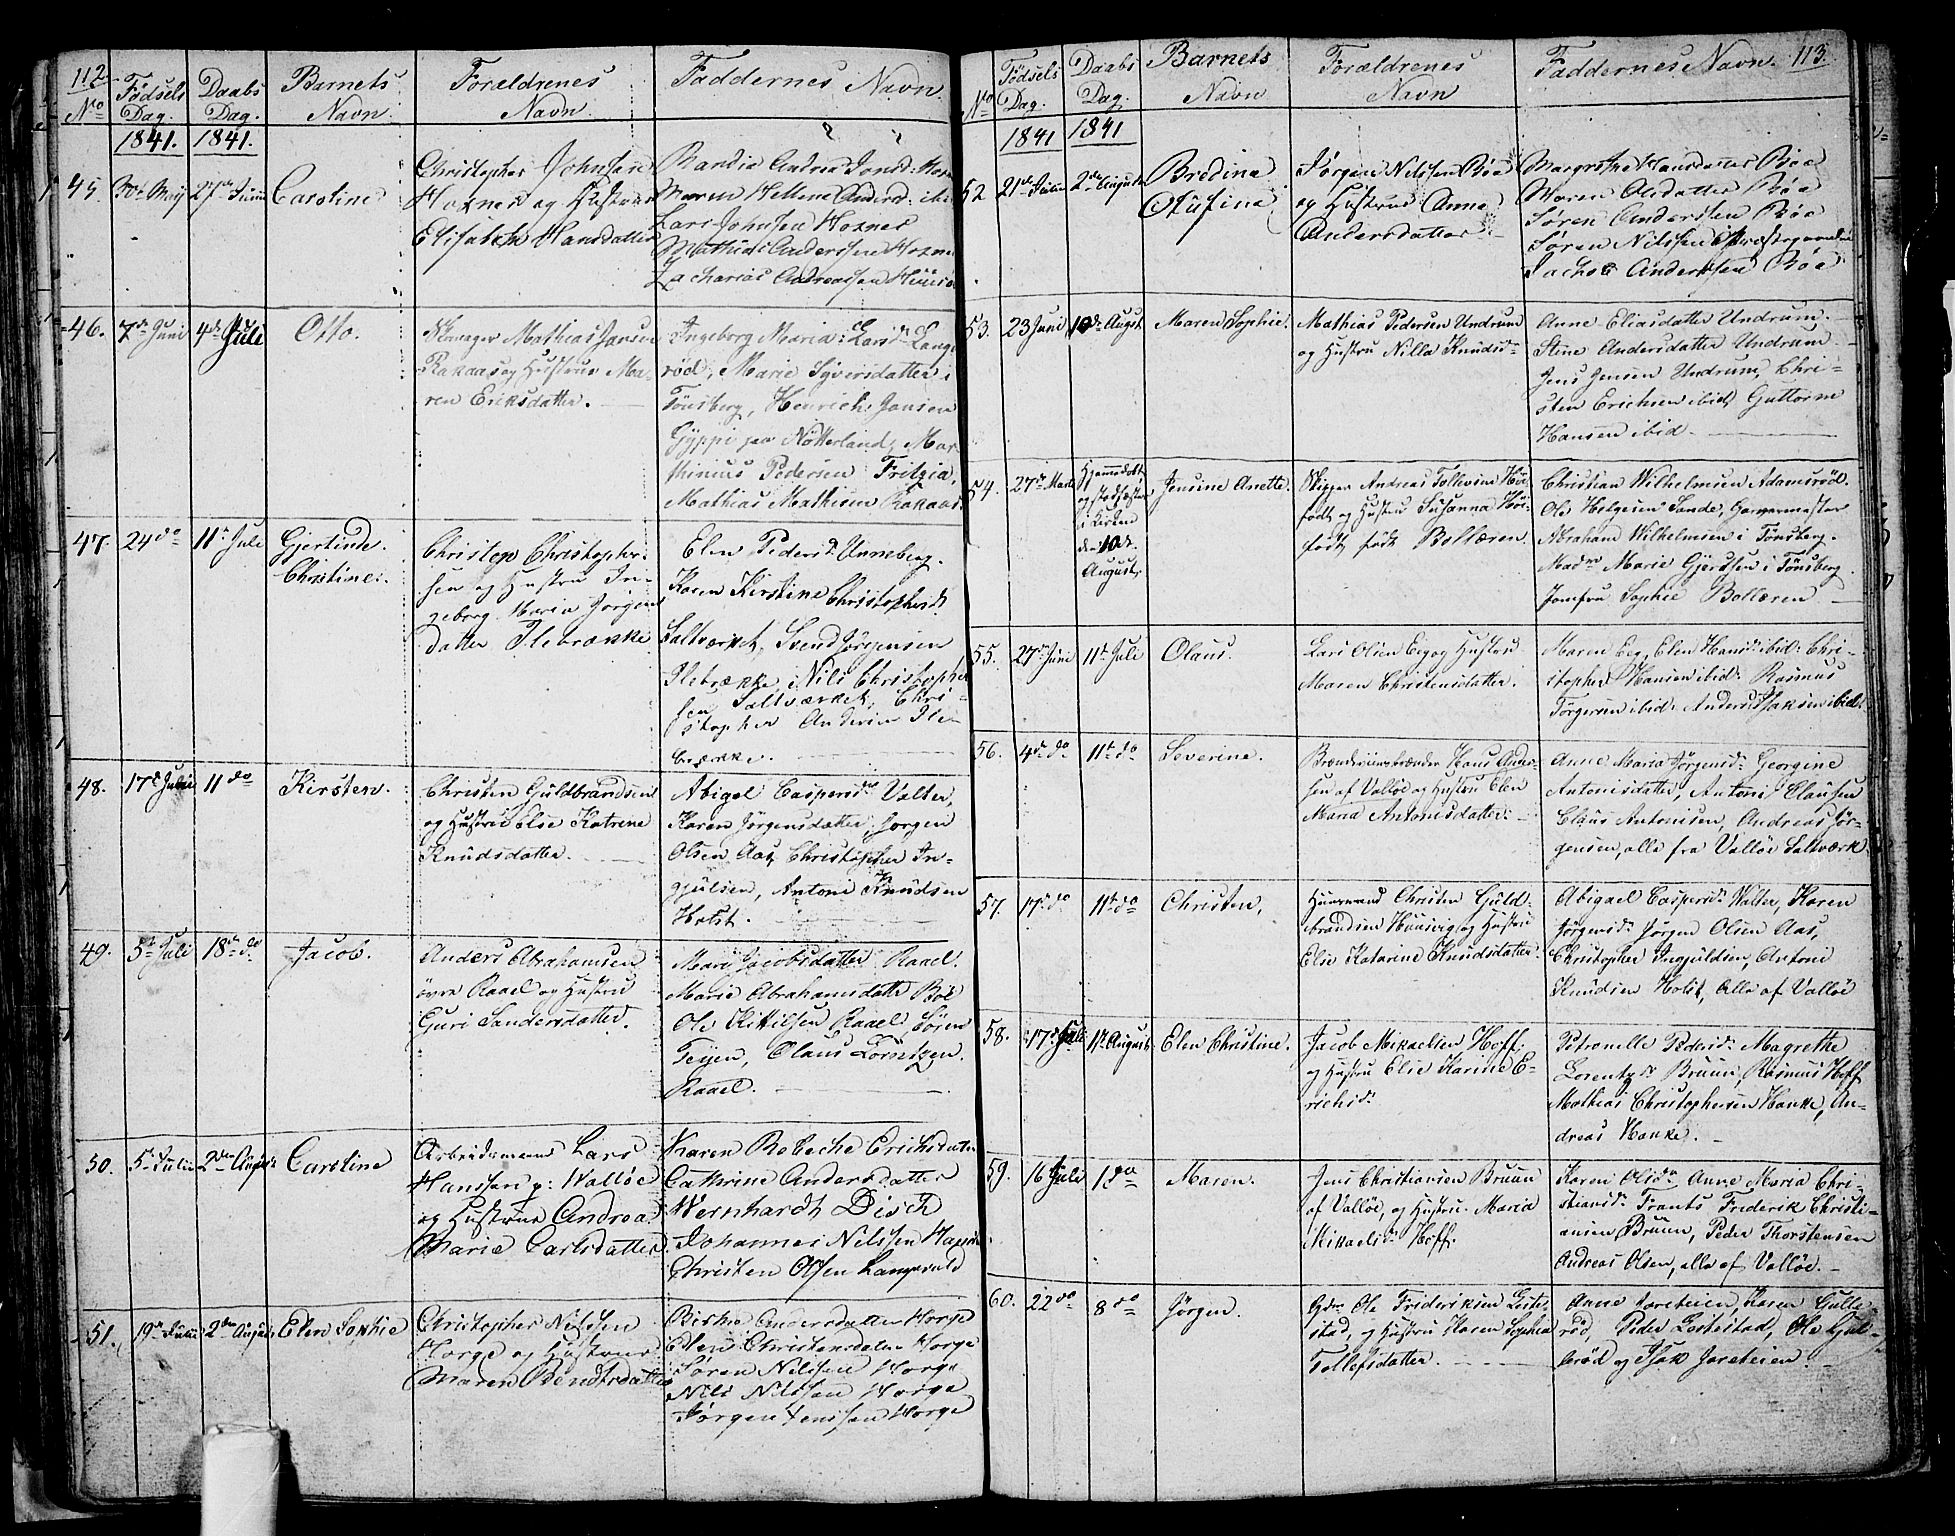 112
No Fødsels Dag. Daabs Dag. Barnets Navn Forældrenes Navn. Faddernes Navn
1841. 1841.
45. 30te May 27de Junii Caroline
Christopher Johnsen
Hoxnes og Hustrue
Elisabeth Hansdatter
Randia Andrea Jonsd:
Maren Hellene Andersd: ibid
Lars Johnsen Hoxnes
Mathias Anderssen Hoxnes
Zacharias Andreassen
46. 7de Juni 4de Juli Otto.
Mathias Jansen
Rakaas og Hustrue Ma-
ren Eriksdatter.
Ingeborg Maria Larsdr Lang-
rød, Marie Syversdatter i
Tønsberg, Henrich Jansen
Gyppi paa Nøtterland, Mar-
thinius Pedersen Fritzia,
Mathias Mathisen Rakaas.
47. 24 do 11te Juli Gjertinde
Christine.
Christop Christopher-
sen og Hustru In-
geborg Maria Jørgens
datter Ilebrække
Elen Pedersdr Unneberg.
Karen Kirstine Christophersdr
Saltværket, Svend Jørgensen
Ilebrække, Nils Christopher
sen Saltværket, Chri-
stopher Andersen Ile-
brække.
48. 17de Juni 11 do Kirsten.
Christen Guldbrandsen
og Hustru Else Katrine
Knudsdatter.
Abigel Caspersdr Valter,
Karen Jørgensdatter, Jørgen
Olsen Aas, Christopher In-
gjulsen, Antoni Knudsen
Holst.
49. 5te Juli 18de do Jacob.
Anders Abrahamsen
øvre Raael og Hustru
Guri Sandersdatter.
Mari Jacobsdatter Raael.
Marie Abrahamsdatter Bøl
Ole Kittilsen Raael, Søren
Teyen, Olaus Lorntzen
Raael.
50. 5te Julii 2den August Caroline
Arbeidsmand Lars
Hanssen p: Walløe
og Hustrue Andrea
Marie Carlsdatter
Karen Rebeche Ericksdatter
Cathrine Andersdatter
Wernhardt Disch
Johannes Nilssen
Christen Olsen
51. 19de Julii 2den August Elen Sophie
Christopher Nilssen
Horge og Hustrue
Maren Bendtsdatter
Birthe Andersdatter Horge
Elen Christensdatter Horge
Søren Nilssen Horge
Nils Nilssen Horge
Jørgen Jenssen Horge
113.
No Fødsels Dag. Daabs Dag. Barnets Navn Forældrenes Navn Faddernes Navn.
1841 1841
52 21de Julii 2den August Bredina
Olufina
Jørgen Nilssen Bøe
og Hustrue Anna
Andersdatter
Margrethe Bøe
Maren Olsdatter Bøe
Søren Anderssen Bøe
Søren Nilssen Præstegaarden
Jachob Anderssen Bøe
53. 23 Juni 10de August Maren Sophie.
Mathias Pedersen Undrum
og Hustru Nilla Knudsdr
Anne Eliasdatter Undrum.
Stine Andersdatter Undrum
Jens Jensen Undrum, Chri-
sten Erichsen ibid, Guttorm
Hansen ibid.
54. 27de Marts Hjemmedøbt
og stadfæstet
i Kirken
den 10de
August.
Jensine Anette.
Skipper Andreas Tollevsen
født og Hustru Susanna
født Bollæren
Christian Wilhelmsen Adamsrød.
Ole Helgesen Sande, Garvermester
Abraham Wilhelmsen i Tønsberg.
Madme Marie Gjerdsen i Tønsberg.
Jomfru Sophie Bollæren
55. 27de Juni 11te Juli Olaus.
Lars Olsen Eeg og Hustru
Maren Christensdatter.
Maren Eeg, Elen Hansdr ibid. Chri-
stopher Hansen ibid. Rasmus
Torgersen ibid. Anders Isaksen ibid.
56. 4de do 11te do Severine.
Brænderiimbrænder Hans Anders-
sen af Valløe og Hustru Elen
Maria Antonisdatter.
Anne Maria Jørgensdr Georgine
Antonisdatter, Antoni Clausen
Claus Antonisen, Andreas Jør-
gensen, alle fra Valløe Saltværk.
57. 17de do 11te do Christen,
Huusmand Christen Guld-
brandsen Huusvig og Hustru
Else Katarine Knudsdatter.
Abigael Caspersdr Valter, Karen
Jørgensdr Jørgen Olsen Aas,
Christopher Ingjuldsen, Antoni
Knudsen Holst, Alle af Valløe
58. 17de Juli 1ste August Elen Christine.
Jacob Mikaelsen Hoff.
og Hustru Elie Karine E-
richsdr
Petronelle Pedersdr Magrethe
Lorentzdr Bruun, Rasmus Hoff
Mathias Christophersen Hanke, An-
dreas Hanke.
59. 16 Juli 1 do Maren.
Jens Christiansen Bruun
af Valløe, og Hustru Maria
Mikaelsdr Hoff.
Karen Olsdr Anne Maria Chri-
stiansdr Frants Frederik Christi-
ansen Bruun, Peder Thorstensen
Andreas Olsen, alle af Valløe.
60. 22 do 8 do Jørgen.
Gdm Ole Frideriksen Leste-
stad, og Hustru Karen Sophia
Tollefsdatter.
Anne Jareteien, Karen Gulle-
rød, Peder Lestestad, Ole Gul-
lerød og Isak Jareteien